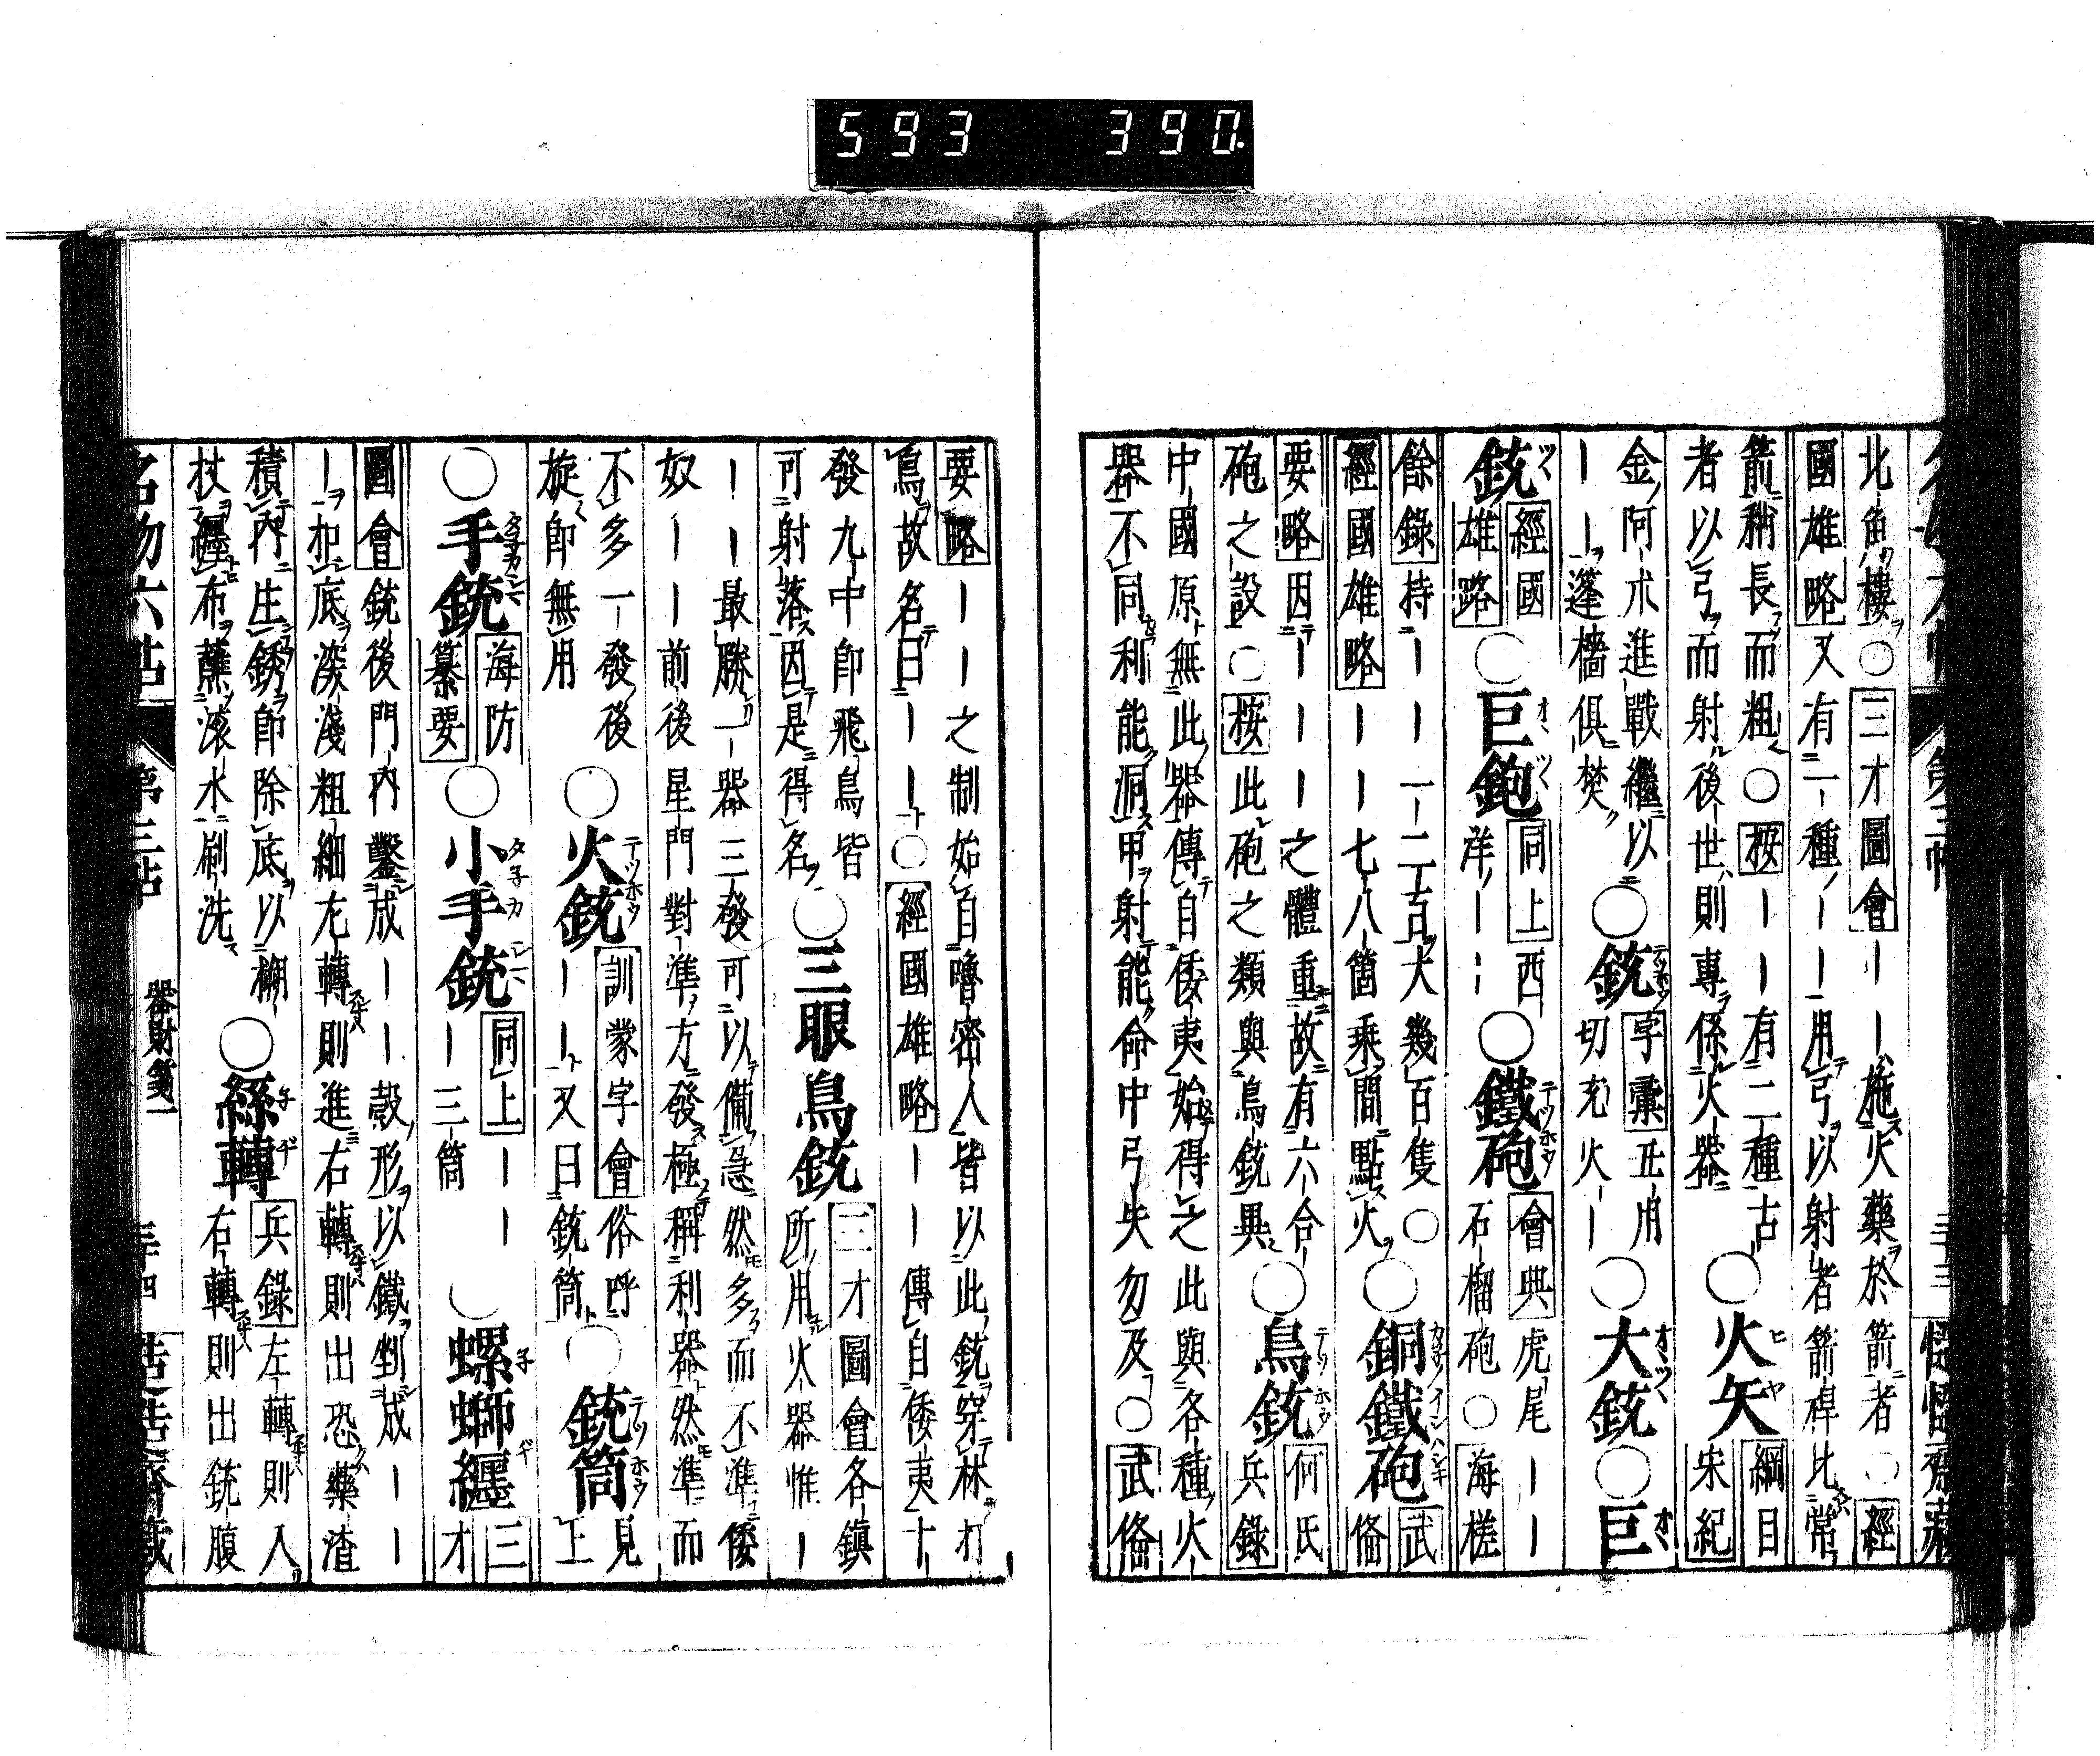 593 390
北角樓○三才圖會｜｜施火藥於箭者○經
國雄略又有二種｜｜用弓以射者箭桿比常
箭稍長而粗○按｜｜有二種古
者以弓而射後世則專係火器
○火矢綱目
宋紀
金阿朮進戰繼以
｜｜｜蓬檣俱焚
○銃字彙丑用
切充火｜
○大銃○巨
銃經國
雄略
○巨鉋同上西
洋｜｜
○鐵砲會典虎尾｜｜
石榴砲○海槎
餘錄持｜｜一二百大幾百隻○
經國雄略｜｜七八箇乘間點火
○銅鐵砲武備
要略因｜｜｜之體重故有六合
砲之設○按此砲之類與鳥銃異
○鳥銃何氏
兵錄
中國原無此器傳自倭夷始得之此與各種火
器不同利能洞甲射能命中弓矢勿及○武備
要略｜｜之制始自嚕密人皆以此銃穿林打
鳥故名曰｜｜○經國雄略｜｜傳自倭夷十
發九中卽飛鳥皆
可射落因是得名
○三眼鳥銃三才圖會各鎮
所用火器惟｜
｜｜最勝一器三發可以備急然多而不準倭
奴｜｜前後星門對準方發極稱利器然準而
不多一發後
旋卽無用
○火銃訓蒙字會俗呼
｜｜又曰銃筒
○銃筒見
上
○手銃海防
纂要
○小手銃同上｜｜
｜三筒
○螺螄纏三
才
圖會銃後門內鑿成｜｜｜轂形以鐵剉成｜｜
｜扣底深淺粗細左轉則進右轉則出恐藥渣
積內生銹卽除底以棚
杖纏布蘸滾水刷洗
○絲轉兵錄左轉則入
右轉則出銃腹
名物六帖
第三帖
器財箋一